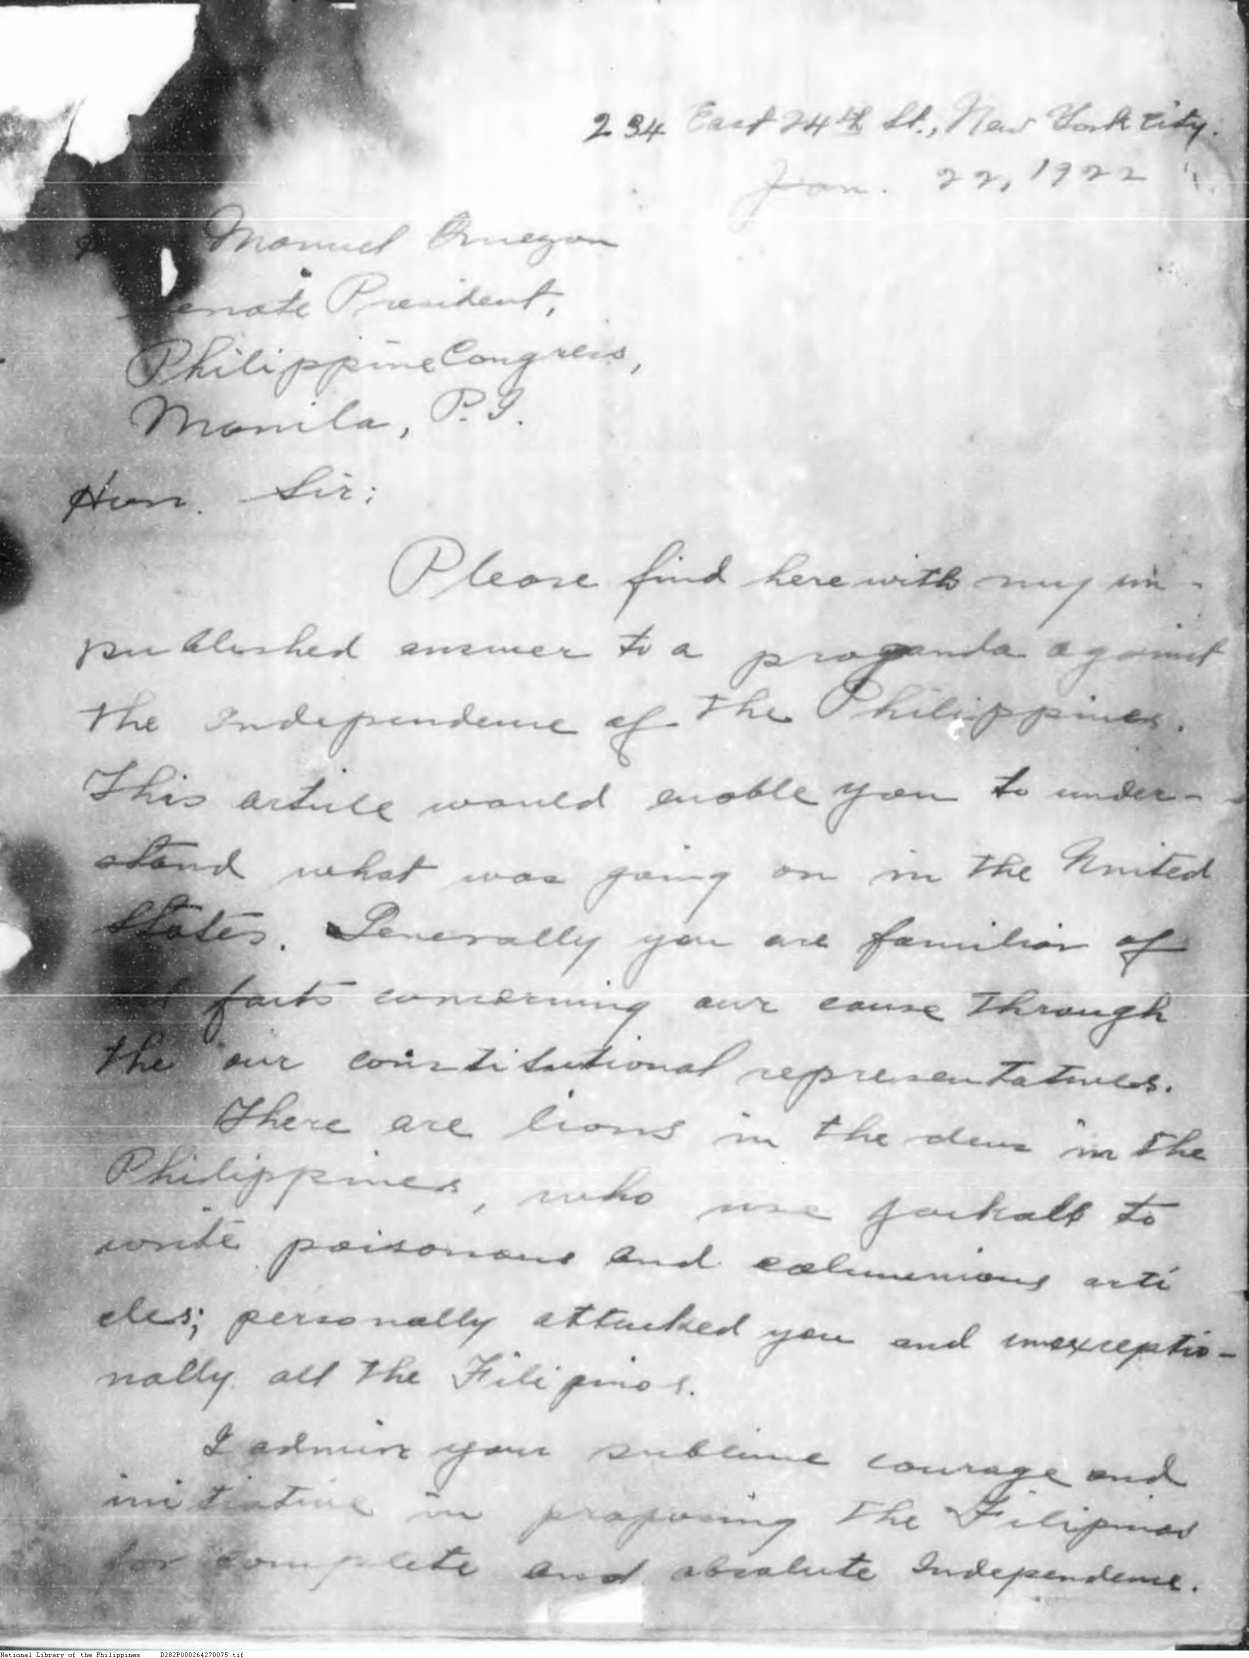 234 East 24th St., New York City.
Jan. 22, 1922
Manuel
Senate President,
Philippine Congress,
Manila, P.I.
Hon. Sir:
Please find herewith my un-
published answer to a proganda against
the Independence of the Philippines.
This article would enable you to under-
stand what was going on in the United
States. Generally you are familiar of
facts concerning our cause through
the our constitutional representatives.
There are lions in the dens in the
Philippines, who use jackalls to
write poisonous and calumnious arti
cles; personally attacked you and unexceptio-
nally all the Filipinos.
I admire your sublime courage and
initiative in proposing the Filipinos
for complete and absolute Independence.
National Library of the Philippines D282P000264270075.tif